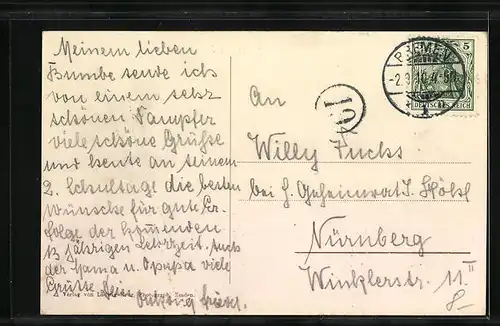 Meinem lieben
Bumbe sende ich
von einem sehr
schönen Dampfer
viele schöne Grüsse
und heute an seinem
2. Schultage die besten
Wünsche für gute Er-
folge der kommenden
13 jährigen Lehrzeit. Auch
der Mama u. Opapa viele
Grüsse
Verlag von
BREMEN
-2.9.10.4-5
1
5
DEUTSCHES REICH
101
An
Willy Fuchs
bei H. Geheimrat J.
Nürnberg
Winklerstr. 11 II